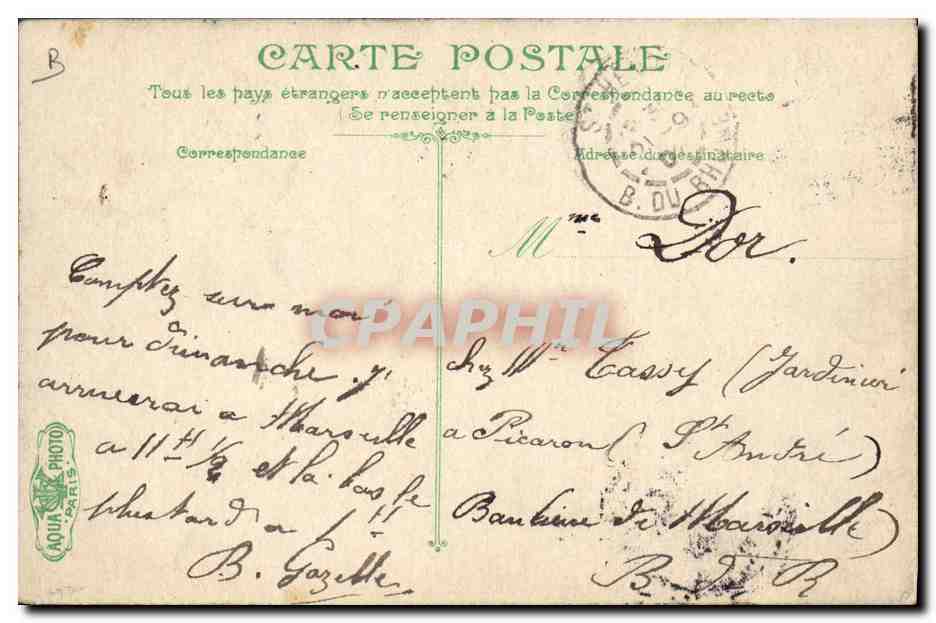 B
CARTE POSTALE
Tous les pays étrangers n'acceptent pas la Correspondance au recto
(Se renseigner à la Poste)
Correspondance
Adresse du destinataire
B. DU RH
Mme Dor.
Comptez sur moi
pour dimanche. j'
arriverai a Marseille
a 11 H 1/2 et la bas le
plus tard a 1 H
B. Gozelle
chez Mr Tassy (Jardinier
a Picaron (St André)
Banlieue de Marseille
B d R
CPAPHIL
AQUA PHOTO
PARIS